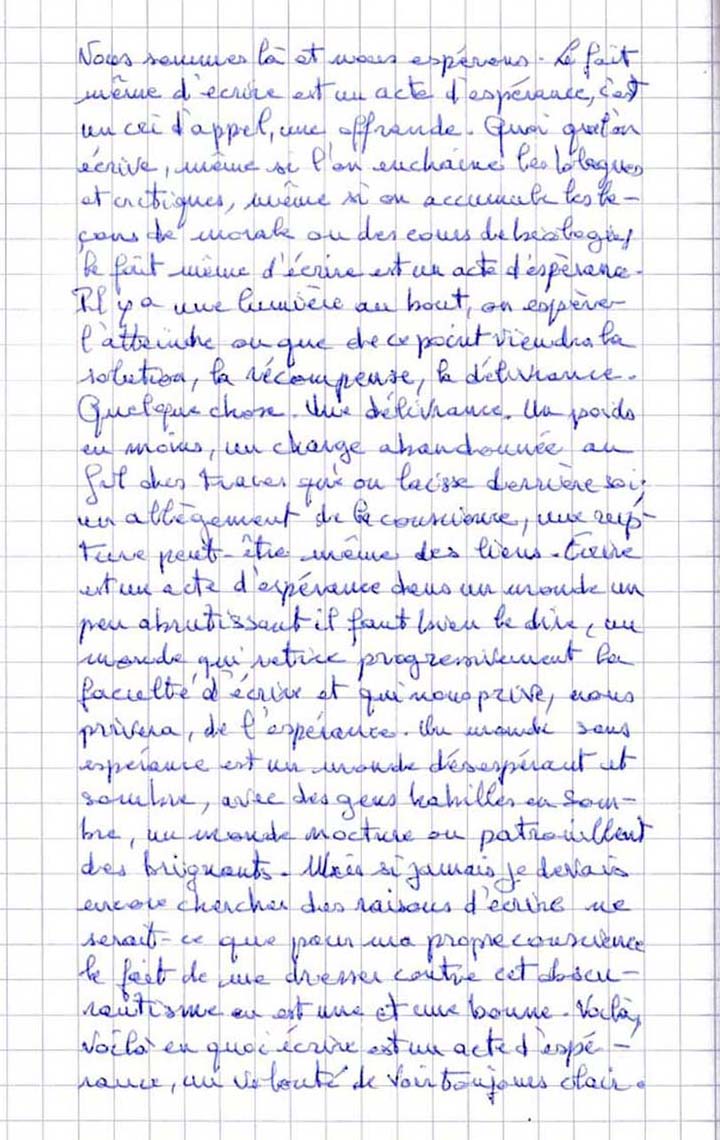 Nous sommes là et nous espérons. Le fait
même d'écrire est un acte d'espérance, c'est
un cri d'appel, une offrande. Quoi qu'on
écrive, même si l'on enchaîne les blagues
et critiques, même si on accumule les le-
çons de morale ou des cours de biologie,
le fait même d'écrire est un acte d'espèrance.
Il y a une lumière au bout, on espère
l'atteindre ou que de ce point viendra la
solution, la récompense, la délivrance.
Quelque chose. Une délivrance. Un poids
en moins, un charge abandonnée au
fil des traces qu'on laisse derrière soi,
un allègement de la conscience, une rup-
ture peut-être même des liens. Ecrire
est un acte d'espérance dans un monde un
peu abrutissant il faut bien le dire, un
monde qui retire progressivement la
faculté d'écrire et qui nous prive, nous
privera, de l'espérance. Un monde sans
espérance est un monde désespérant et
sombre, avec des gens habillés en som-
bre, un monde nocture ou patrouillent
des briguants. Mais si jamais je devais
encore chercher des raisons d'écrire ne
serait-ce que pour ma propre conscience
le fait de me dresser contre cet obscu-
rantisme en est une et une bonne. Voilà,
voilà en quoi écrire est un acte d'espé-
rance, un volonté de voir toujours clair.